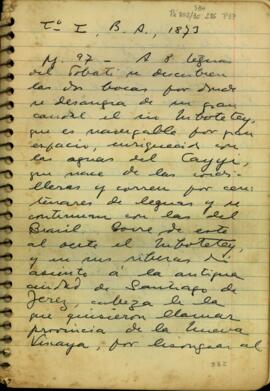 Tº I, B. A., 1873
M. 97 - A 8 leguas
del Tobatí se descubren
las dos bocas por donde
se desangra de un gran
caudal el rio Mbotetey,
que es navegable por gran
espacio, enriquecido con
las aguas del Cayyi,
que nace de las cordi-
lleras y corren por cen-
tenares de leguas y se
continuan con las del
Brasil. Corre de este
al oeste el Mbotetey,
y en sus riberas dió
asiento á la antigua
ciudad de Santiago de
Jerez, cabeza de la
que quisieron llamar
provincia de la Nueva
Viscaya, por lisongear al